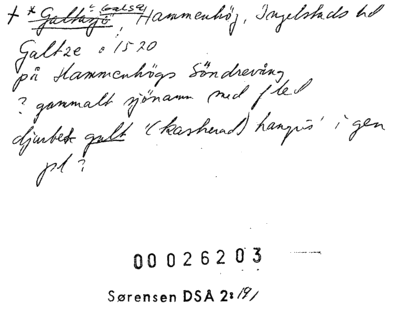 + * Galtasjö Hammenhög, Ingelstads hd
Galtze : 1520
på Hammenhögs Söndrevång
? gammalt sjönamn med fled
djurbet galt '(kastrerad) hangris' i gen
pl ?
00026203
Sørensen DSA 2:191